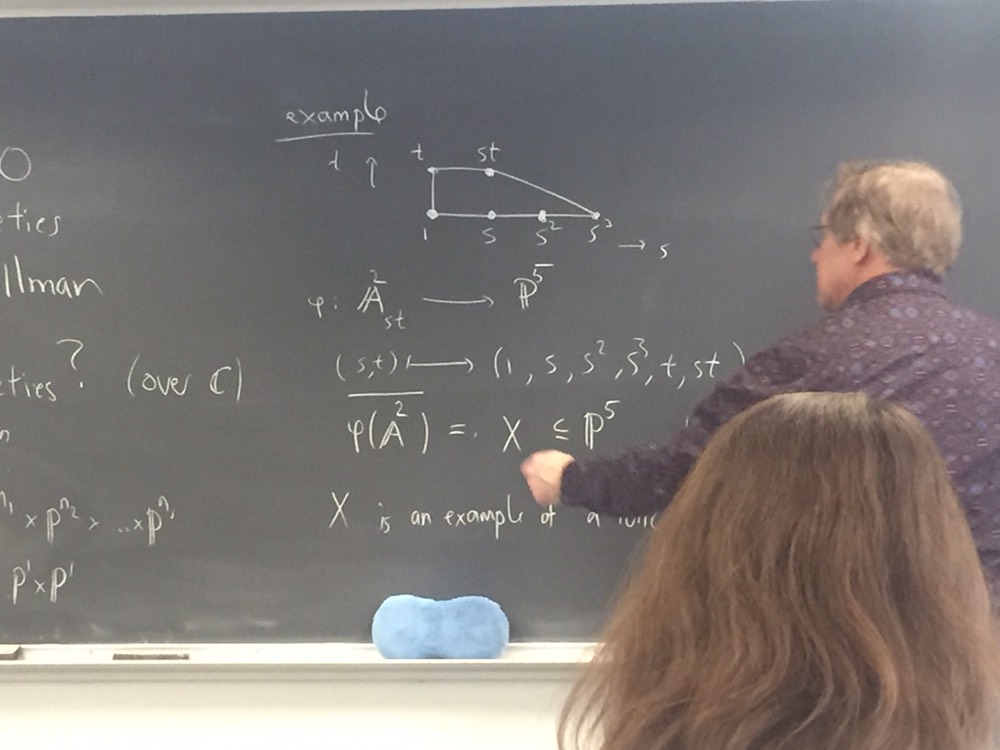 O
eties
llman
eties? (over ℂ)
n
n₁ × ℙ^n₂ × ... × ℙ^nᵣ
ℙ¹ × ℙ¹
example
t ↑
t st
1 s s² s³
→ s
φ: 𝔸²_st ⟶ ℙ⁵
(s,t) ⟼ (1, s, s², s³, t, st)
φ(𝔸²) =: X ⊆ ℙ⁵
X is an example of a